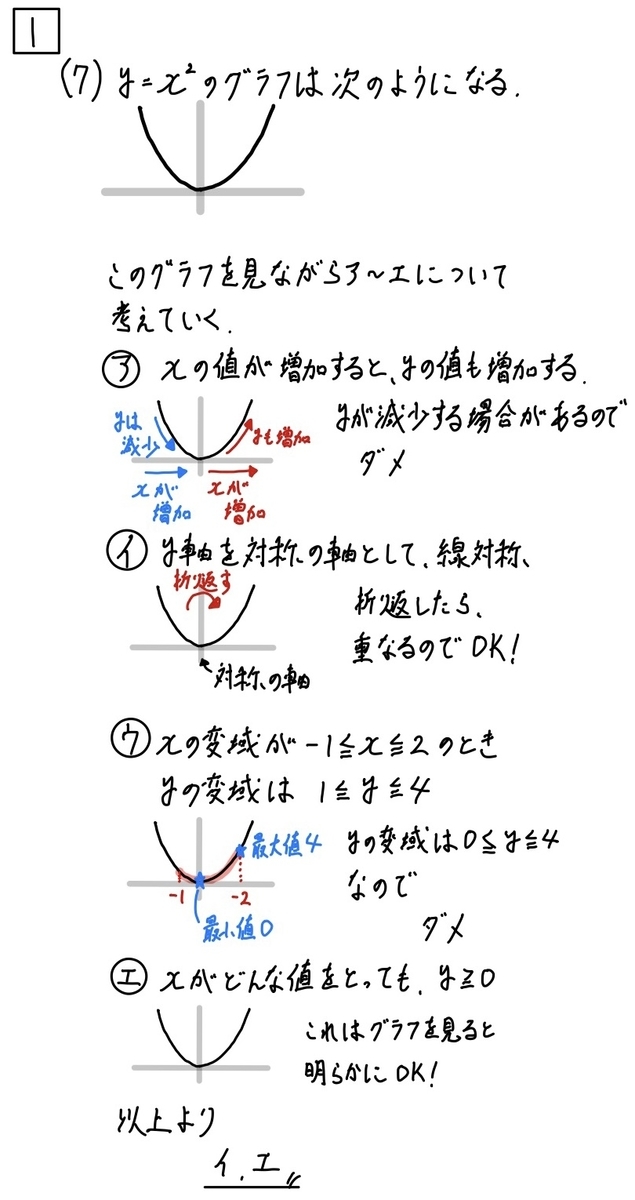 1
(7) y=x²のグラフは次のようになる.
このグラフを見ながらア~エについて
考えていく.
㋐ xの値が増加すると、yの値も増加する.
yは
減少
yも増加
xが
増加
xが
増加
yが減少する場合があるので
ダメ
㋑ y軸を対称の軸として、線対称、
折り返す
対称の軸
折り返したら、
重なるのでOK!
㋒ xの変域が -1≦x≦2 のとき
yの変域は 1≦y≦4
最大値4
-1
-2
最小値0
yの変域は0≦y≦4
なので
ダメ
㋓ xがどんな値をとっても、y≧0
これはグラフを見ると
明らかにOK!
以上より
イ、エ